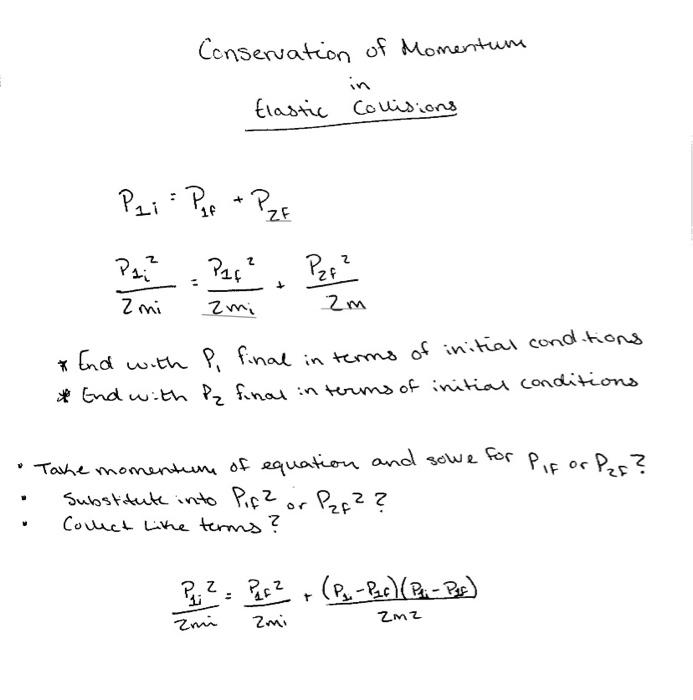 Conservation of Momentum
in
Elastic Collisions
P₁ᵢ = P₁f + P₂F
P₁ᵢ²/2mi = P₁f²/2mi + P₂f²/2m
* End with P₁ final in terms of initial conditions
* End with P₂ final in terms of initial conditions
• Take momentum of equation and solve for P₁F or P₂F?
• Substitute into P₁F² or P₂F²?
• Collect Like terms?
P₁ᵢ²/2mi = P₁f²/2mi + (P₁ᵢ-P₁f)(P₁ᵢ-P₁f)/2m2